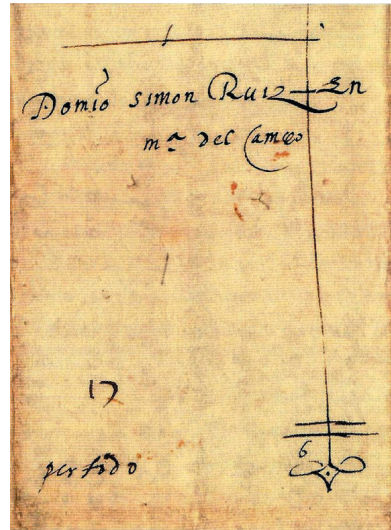 Domio simon Ruiz En
mª del Campo
17
6